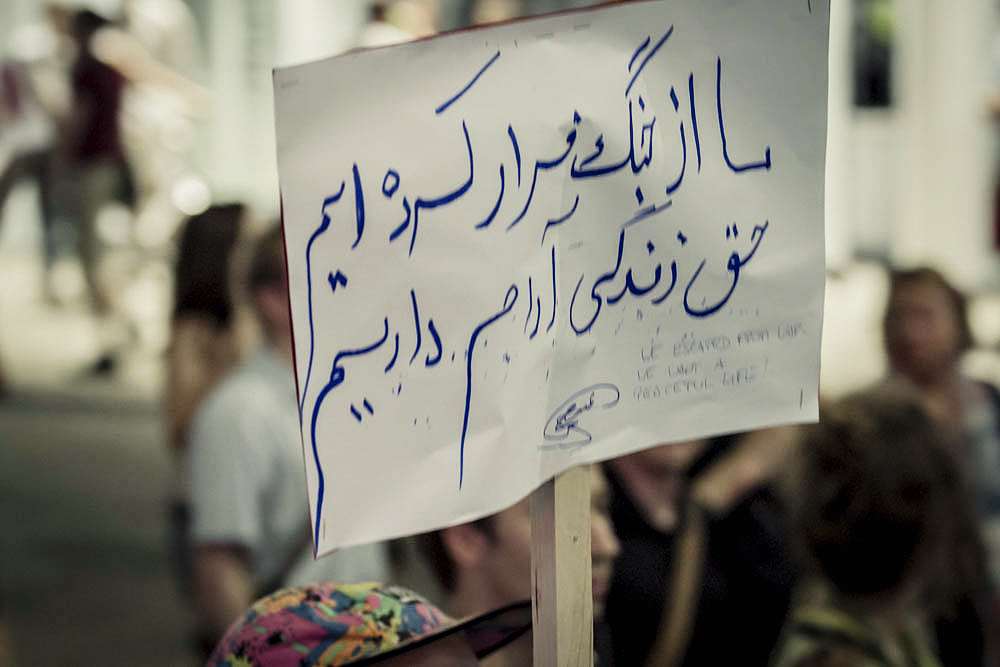 ما از جنگ فرار کرده ایم
حق زندگی آرام داریم
WE ESCAPED FROM WAR.
WE WANT A
PEACEFUL LIFE!